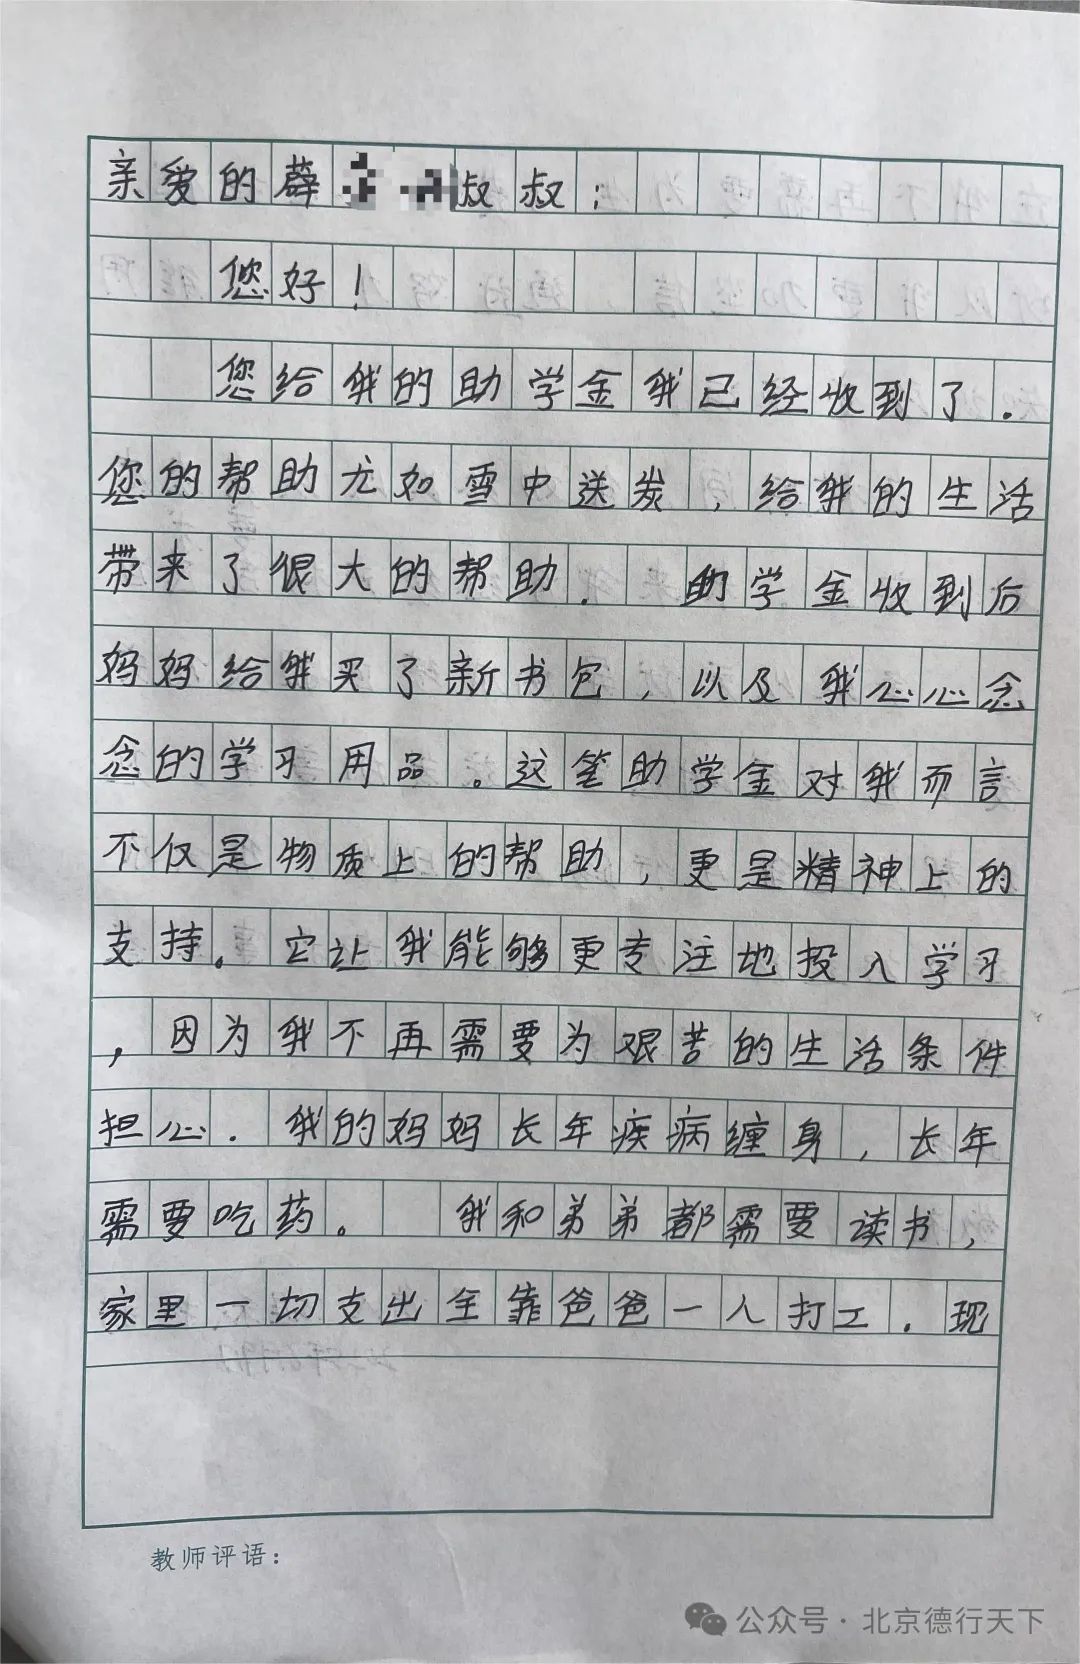 亲爱的薛叔叔：
您好！
您给我的助学金我已经收到了.
您的帮助尤如雪中送炭，给我的生活
带来了很大的帮助. 助学金收到后
妈妈给我买了新书包，以及我心心念
念的学习用品。这笔助学金对我而言
不仅是物质上的帮助，更是精神上的
支持。它让我能够更专注地投入学习
，因为我不再需要为艰苦的生活条件
担心. 我的妈妈长年疾病缠身，长年
需要吃药。 我和弟弟都需要读书，
家里一切支出全靠爸爸一人打工.现
教师评语：
公众号·北京德行天下